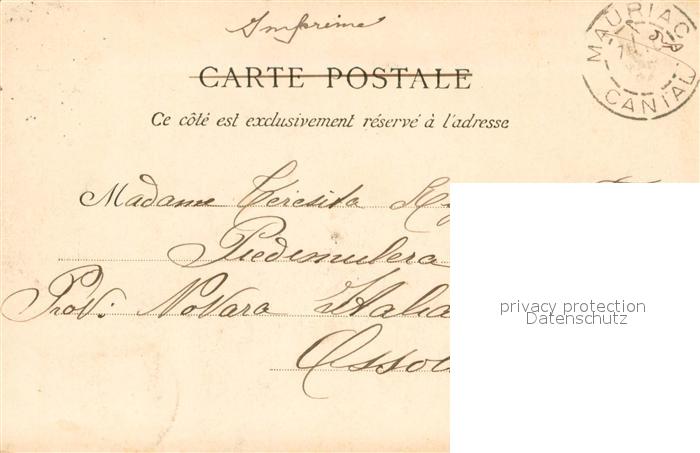 Imprimé
CARTE POSTALE
MAURIAC
CANTAL
Ce côté est exclusivement réservé à l'adresse
Madame Teresita
Piedimulera
Prov: Novara Italia
privacy protection
Datenschutz